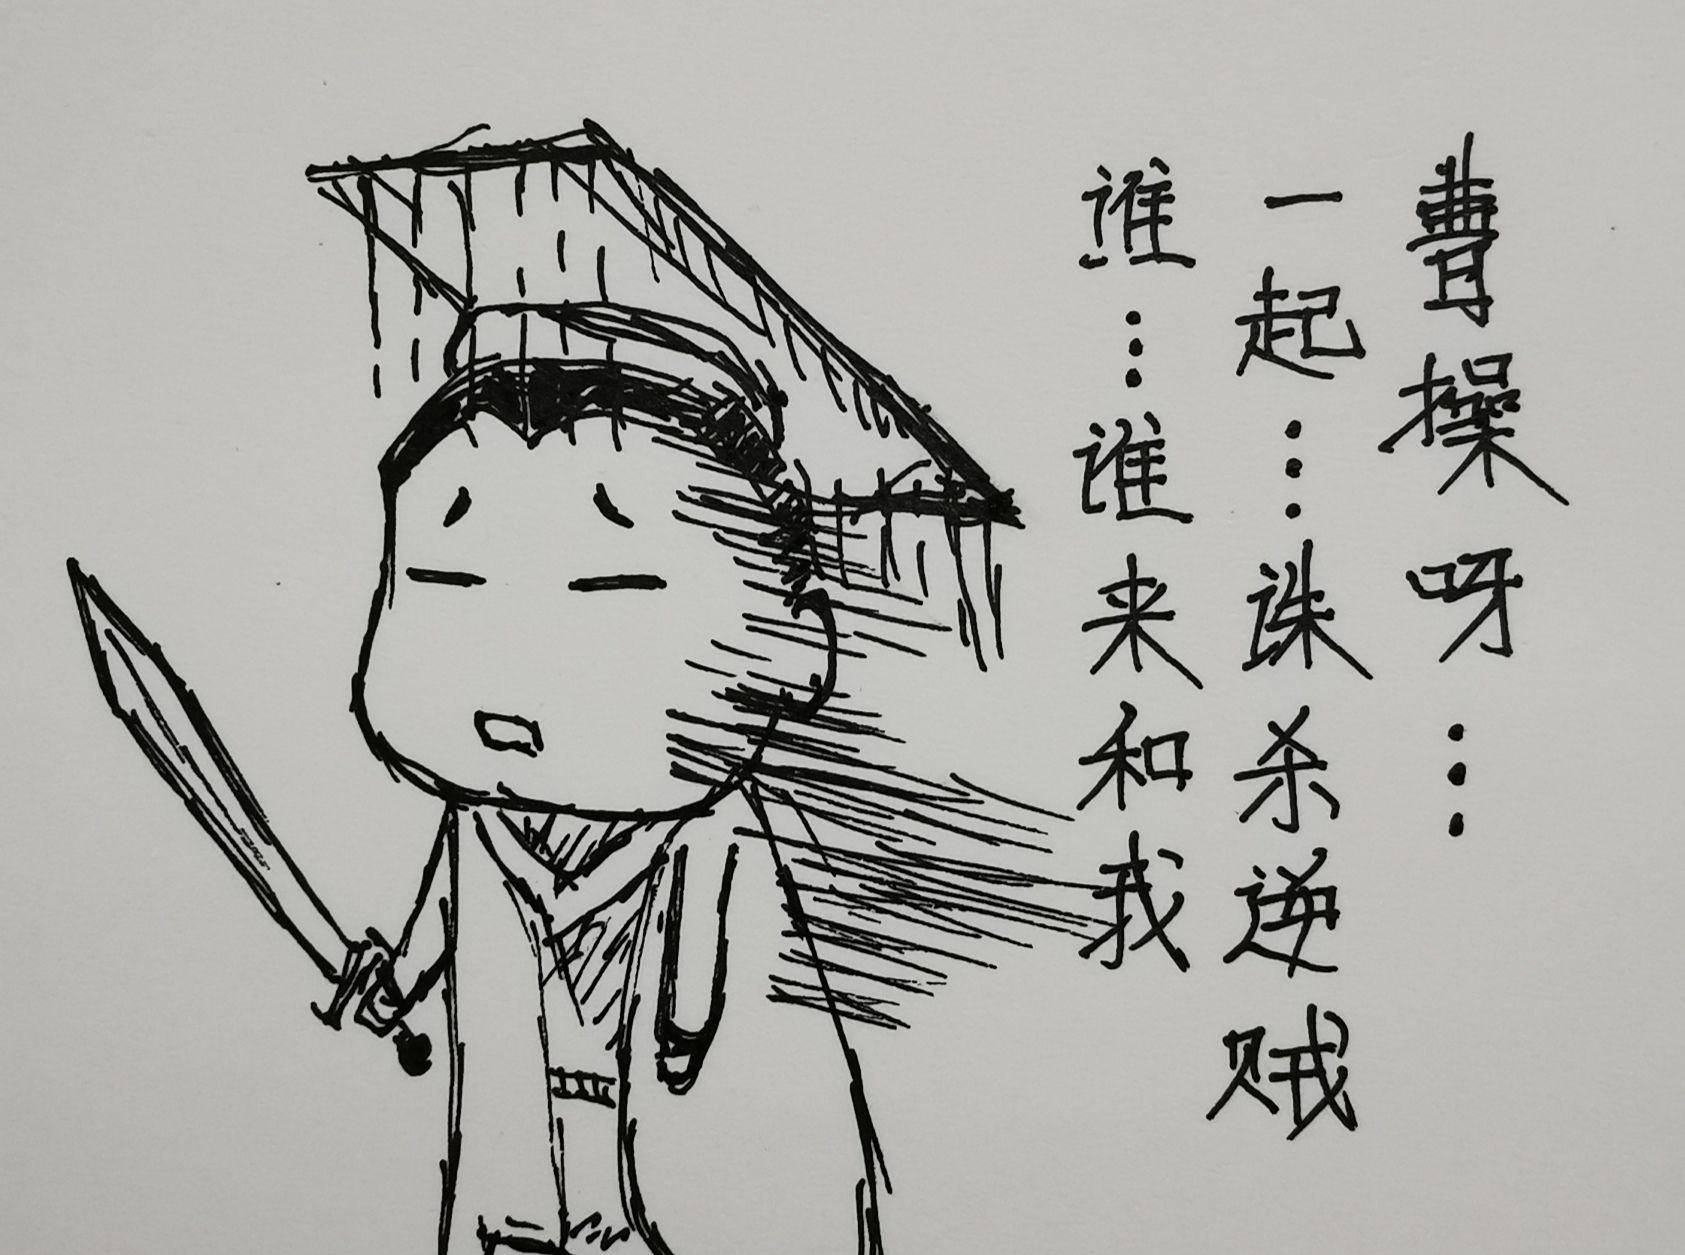 曹操呀…
一起…诛杀逆贼
谁…谁来和我